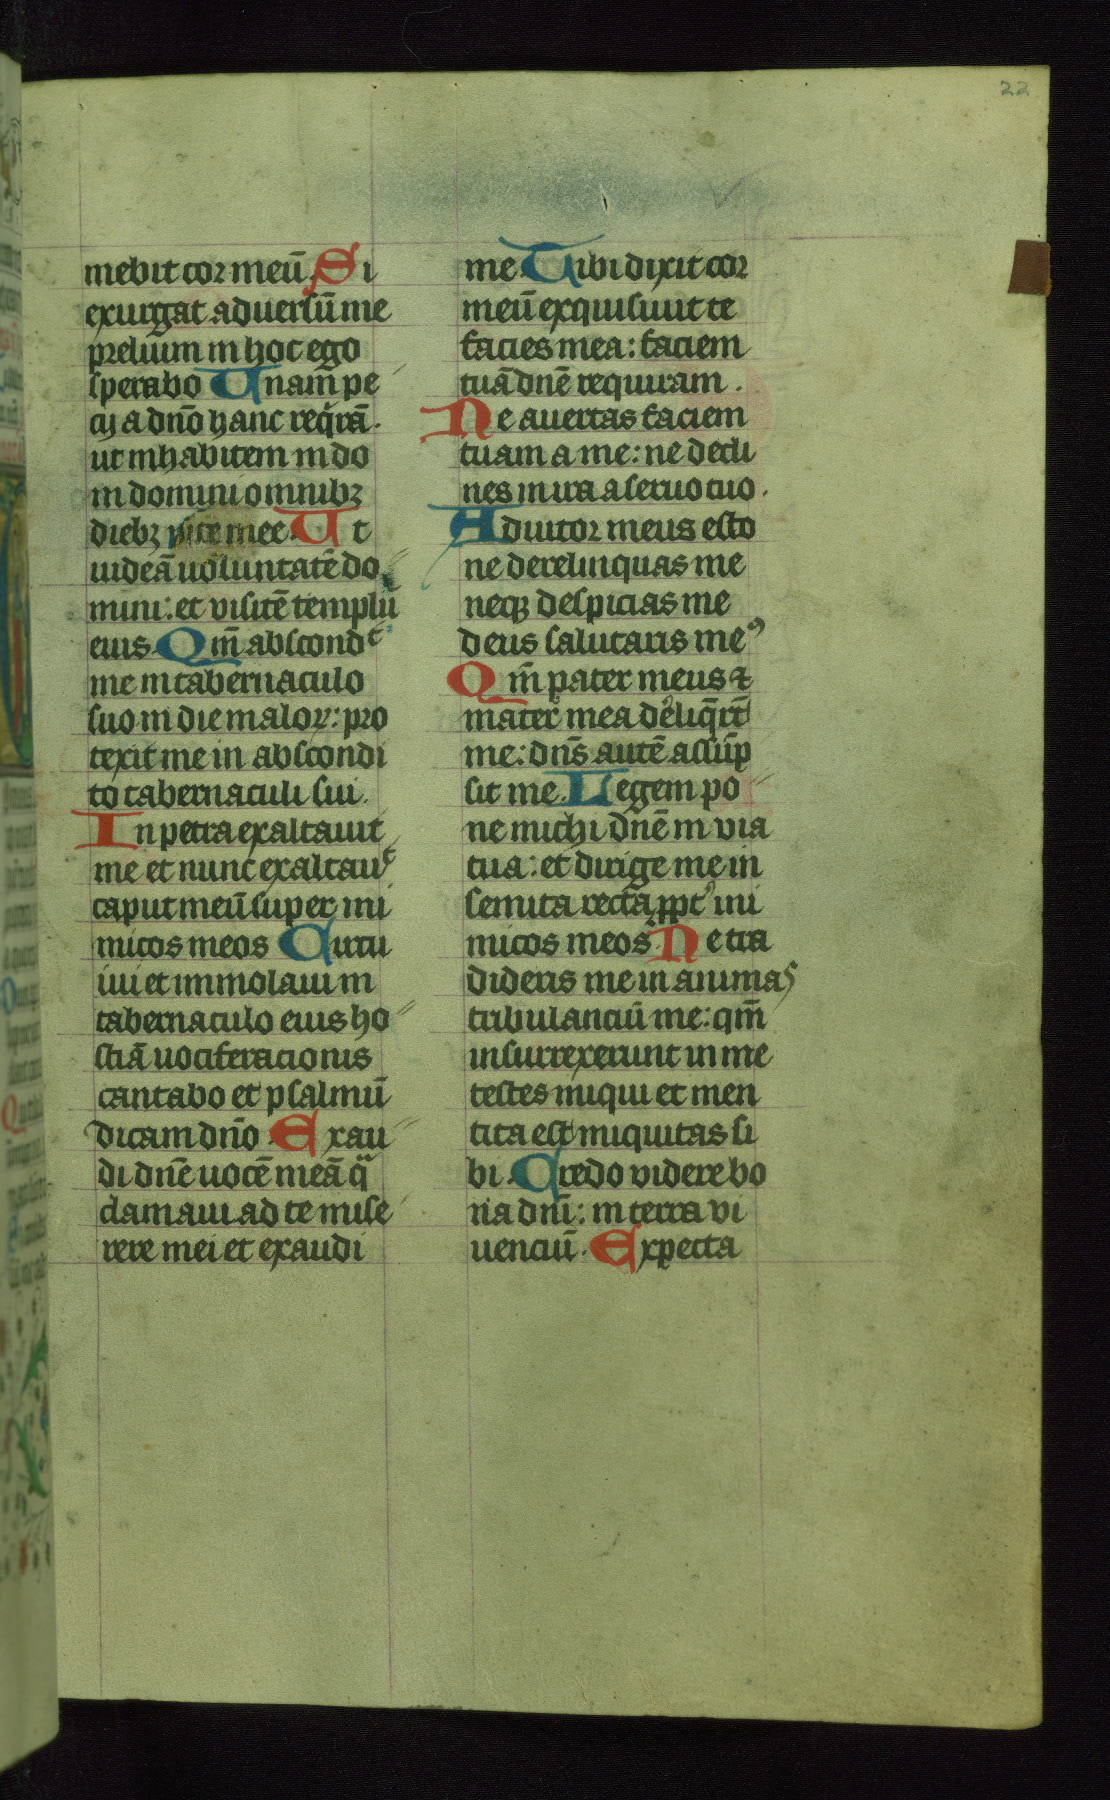 22
mebit cor meū. Si
exurgat aduersū me
prelium in hoc ego
sperabo Unam pe
cij a dn̄o hanc req̄rā.
ut inhabitem in do
m domini omnibꝫ
diebꝫ vite mee. Ut
uideā uoluntatē do
mini: et visitē templū
eius. Qm̄ abscondᵗ
me in tabernaculo
suo in die maloꝝ: pro
texit me in abscondi
to tabernaculi sui.
In petra exaltauit
me et nunc exaltauᵗ
caput meū super ini
micos meos Circu
iui et immolaui in
tabernaculo eius ho
stiā uociferacionis
cantabo et psalmū
dicam dn̄o. Exau
di dn̄e uocē meā qͣ
clamaui ad te mise
rere mei et exaudi
me. Tibi dixit cor
meū exquisiuit te
facies mea: faciem
tuā dn̄e requiram.
Ne auertas faciem
tuam a me: ne decli
nes in ira a seruo tuo.
Adiutor meus esto
ne derelinquas me
neqꝫ despicias me
deus salutaris meꝰ
Qm̄ pater meus ⁊
mater mea deͬliq̄rt̄
me: dn̄s autē assūp
sit me. Legem po
ne michi dn̄e in via
tua: et dirige me in
semita recta ꝓptͬ ini
micos meos. Ne tra
dideris me in animas
tribulanciū me: qm̄
insurrexerunt in me
testes iniqui et men
tita est iniquitas si
bi. Credo videre bo
na dn̄i: in terra vi
uenciū. Expecta